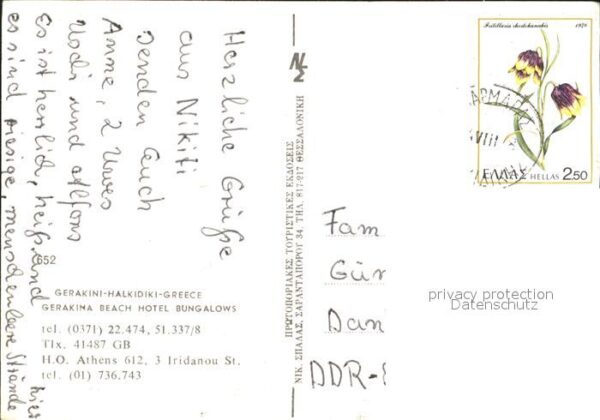 Herzliche Grüße
aus Nikiti
senden Euch
Anme, 2 Uwes
Uschi und Alfons
Es ist herrlich, heiß und
es sind riesige, menschenleere Strände
hier
652
GERAKINI-HALKIDIKI-GREECE
GERAKINA BEACH HOTEL BUNGALOWS
tel. (0371) 22.474, 51.337/8
Tlx. 41487 GB
H.O. Athens 612, 3 Iridanou St.
tel. (01) 736.743
ΠΡΩΤΟΠΟΡΙΑΚΕΣ ΤΟΥΡΙΣΤΙΚΕΣ ΕΚΔΟΣΕΙΣ
ΝΙΚ. ΣΠΑΛΑΣ, ΣΑΡΑΝΤΑΠΟΡΟΥ 34, ΤΗΛ. 817-217 ΘΕΣΣΑΛΟΝΙΚΗ
Fritillaria rhodokanakis 1978
ΕΛΛΑΣ HELLAS 2.50
VIII
Fam
Gür
Dan
DDR-
privacy protection
Datenschutz